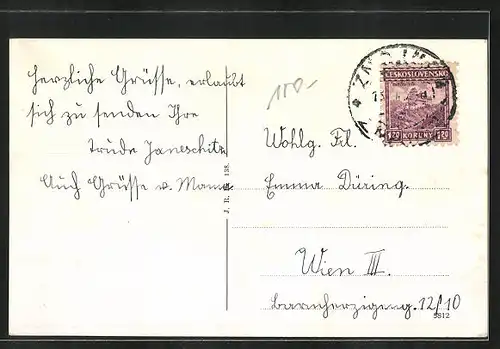 Herzliche Grüsse, erlaubt
sich zu senden Ihre
Trude Janeschitz
Auch Grüsse v. Mama
150.-
ČESKOSLOVENSKO
1.20 KORUNY 1.20
Wohlg. Frl.
Emma Düring
Wien III.
12/10
5812